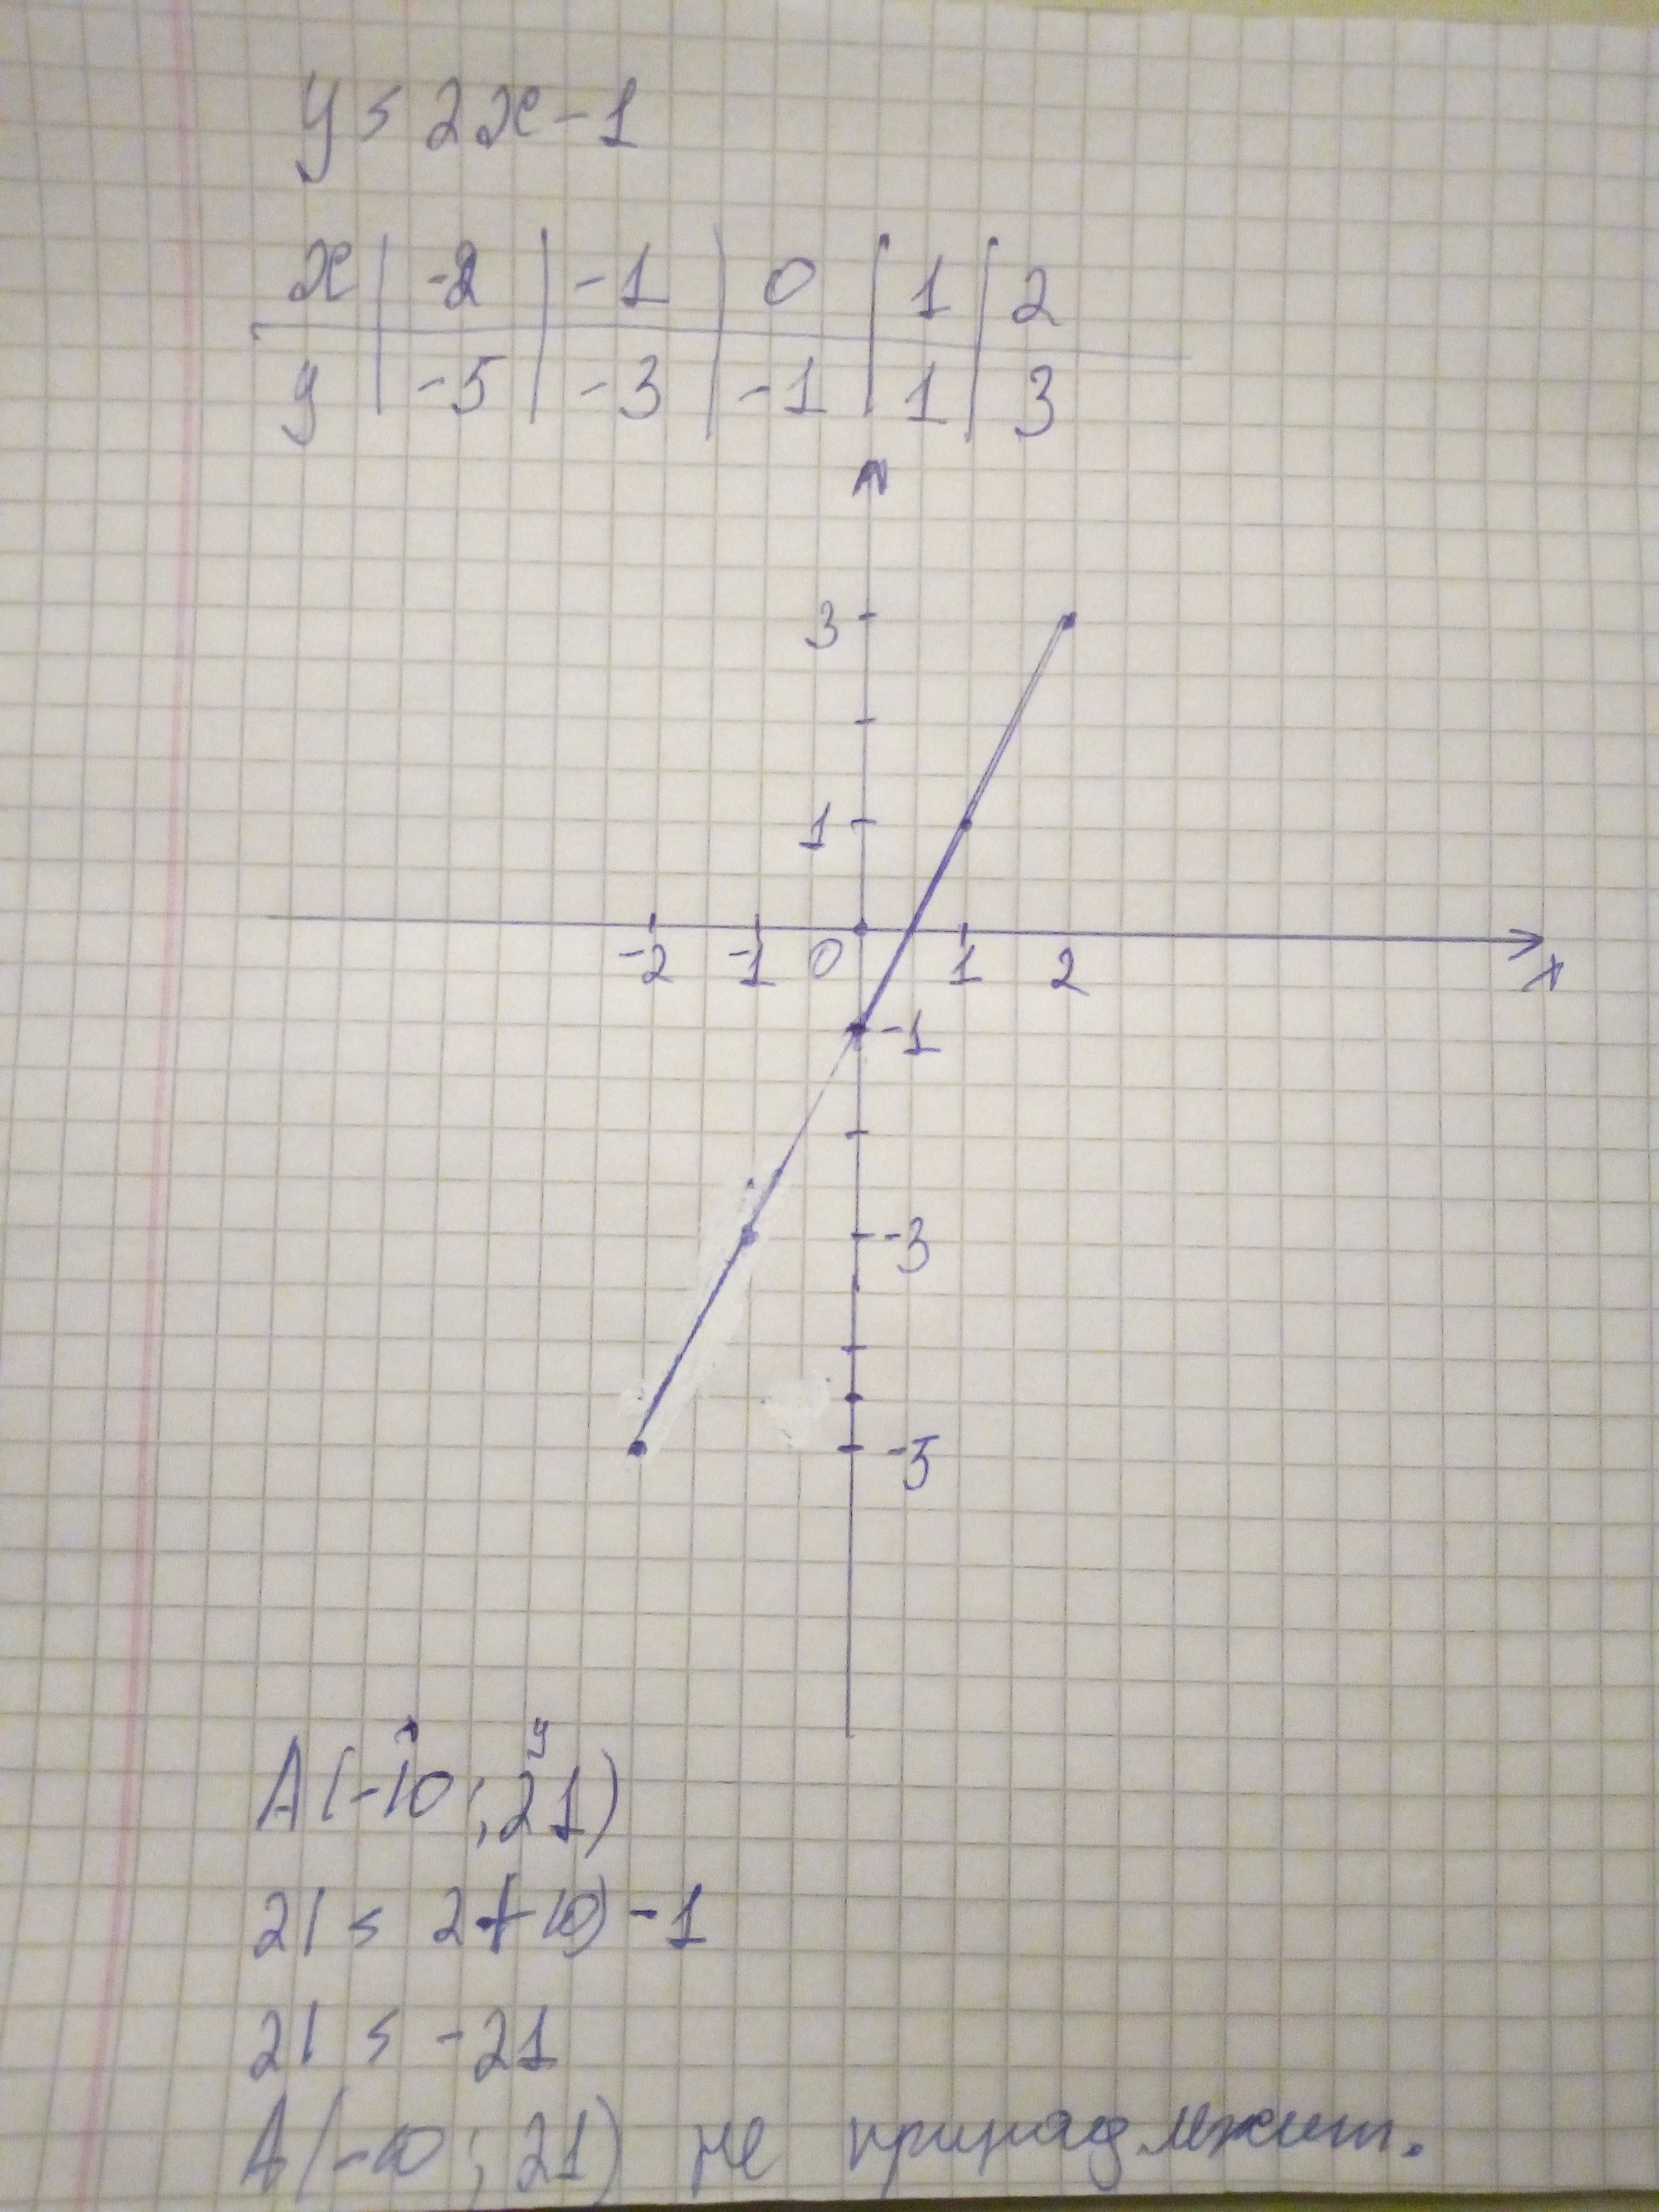 y = 2x - 1
x | -2 | -1 | 0 | 1 | 2
y | -5 | -3 | -1 | 1 | 3
3
1
-2 -1 0 1 2
x
-1
-3
-5
x y
A(-10; 21)
21 = 2·(-10) - 1
21 = -21
A(-10; 21) не принадлежит.